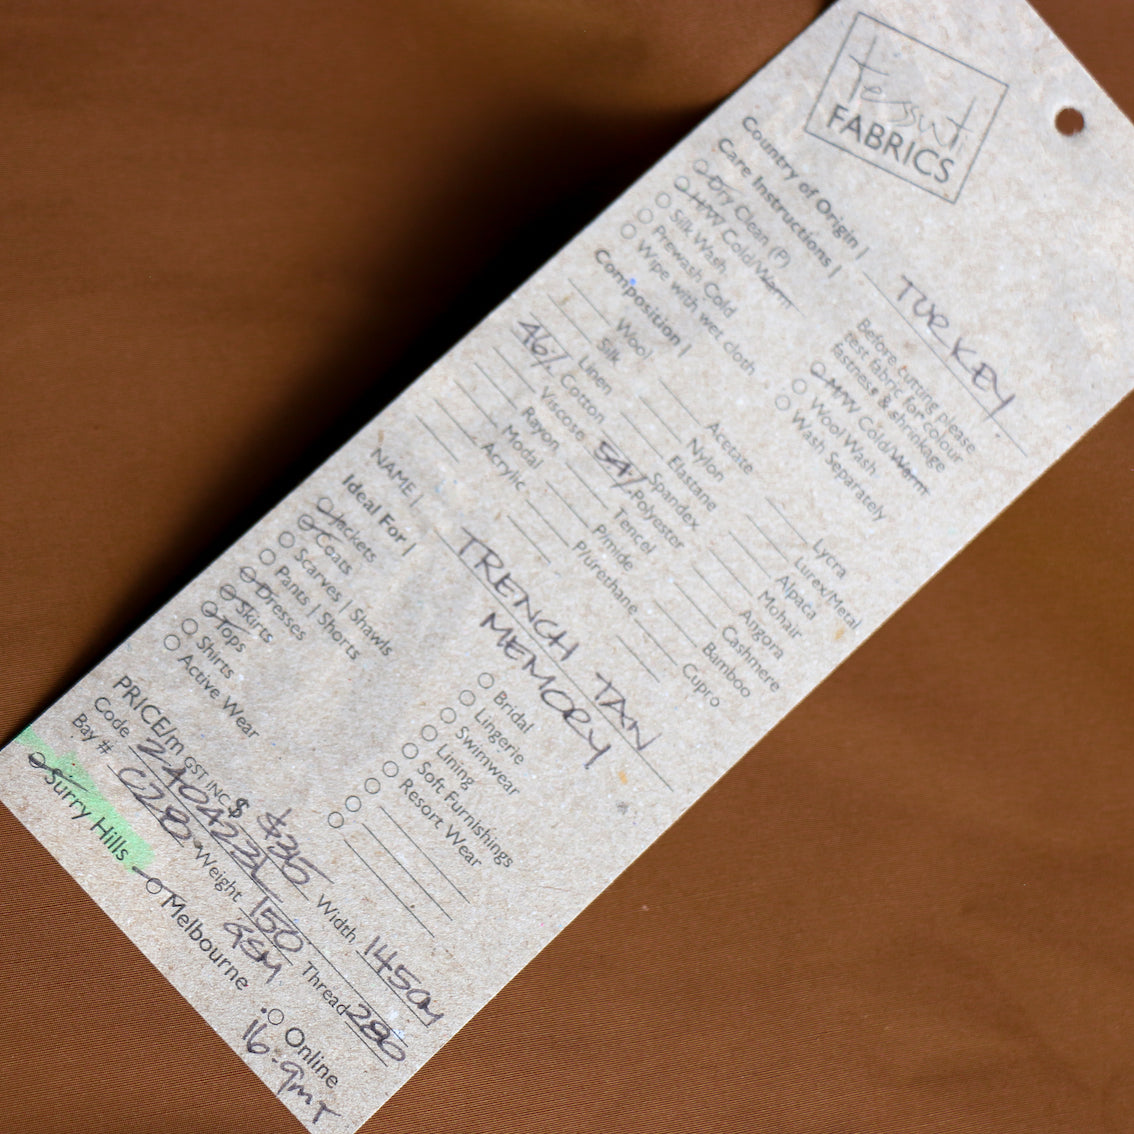 tessuti
FABRICS
Country of Origin | TURKEY
Care Instructions |
Before cutting please
test fabric for colour
fastness & shrinkage
Dry Clean (P)
H/W Cold/Warm
Silk Wash
Prewash Cold
Wipe with wet cloth
M/W Cold/Warm
Wool Wash
Wash Separately
Composition |
Wool
Silk
Linen
46% Cotton
Viscose
Rayon
Modal
Acrylic
Acetate
Nylon
Elastane
Spandex
54% Polyester
Tencel
P/mide
P/urethane
Lycra
Lurex/Metal
Alpaca
Mohair
Angora
Cashmere
Bamboo
Cupro
NAME | TRENCH TAN
MEMORY
Ideal For |
Jackets
Coats
Scarves | Shawls
Pants | Shorts
Dresses
Skirts
Tops
Shirts
Active Wear
Bridal
Lingerie
Swimwear
Lining
Soft Furnishings
Resort Wear
PRICE/m GST INC $ $35 Width 145cm
Code 240423L Weight 150 GSM Thread 280
Bay # C28
Surry Hills Melbourne Online
16.9mT